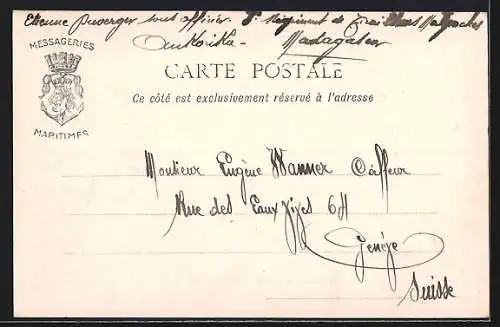 Etienne Duverger sous officier. 3e Régiment de Tirailleurs Malgaches
Madagascar
MESSAGERIES
MARITIMES
CARTE POSTALE
Ce côté est exclusivement réservé à l'adresse
Monsieur Eugène Wanner Coiffeur
Rue des Eaux Vives 64
Genève
Suisse